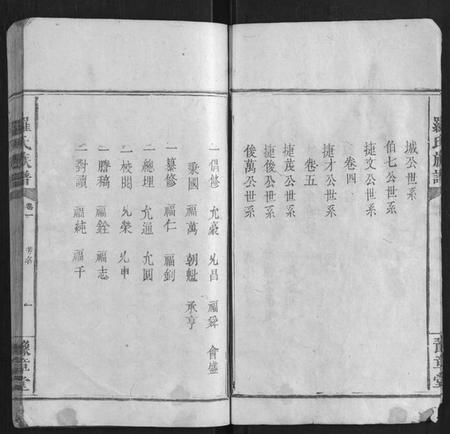 羅氏族譜
豫章堂
城公世系
伯七公世系
捷文公世系
卷四
捷才公世系
卷五
捷茂公世系
捷俊公世系
俊萬公世系
一倡修 允 允昌 福舜 會盛
秉國 福萬 朝魁 承亨
一纂修 福仁 福釗
一總理 允通 允圓
一校閱 允榮 允申
一謄稿 福銓 福志
一對讀 福純 福千
羅氏族譜
卷一
一
豫章堂